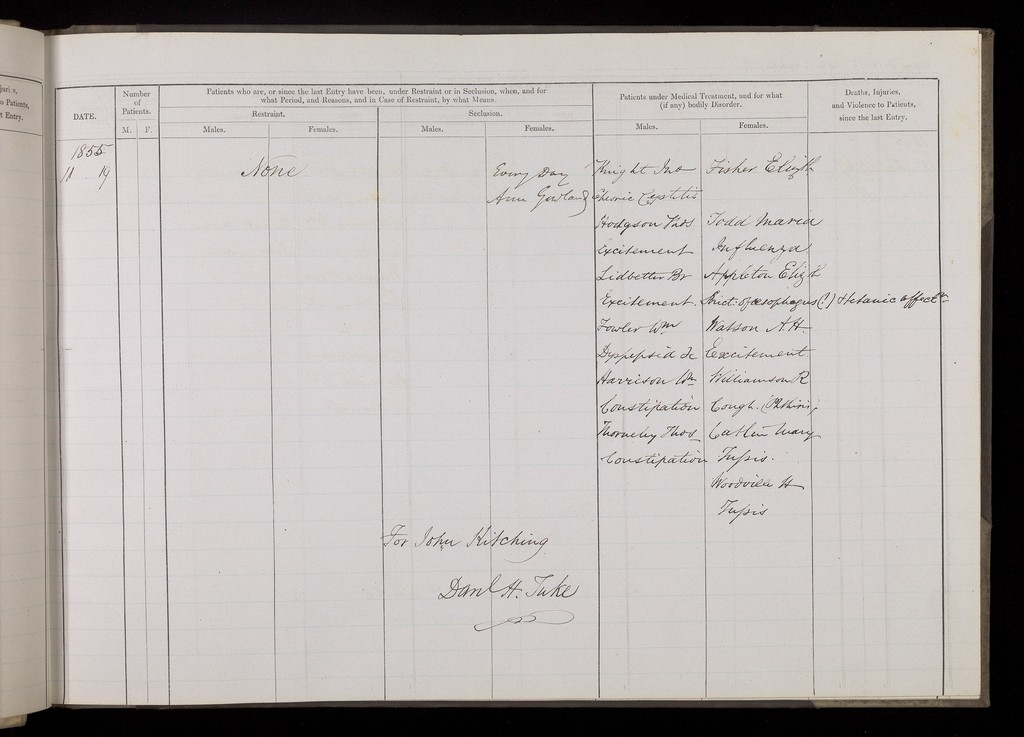 juries,
to Patients,
t Entry.
DATE.
Number
of
Patients.
M. F.
Patients who are, or since the last Entry have been, under Restraint or in Seclusion, when, and for
what Period, and Reasons, and in Case of Restraint, by what Means.
Restraint.
Seclusion.
Males. Females. Males. Females.
Patients under Medical Treatment, and for what
(if any) bodily Disorder.
Males. Females.
Deaths, Injuries,
and Violence to Patients,
since the last Entry.
1855
11 . 19 None Every Day Knight Jno Fisher Elizth
Ann Gowland Chronic Cystitis
Hodgson Thos Todd Maria
Excitement Influenza
Lidbetter Br Appleton Elizth
Excitement. Strict: of œsophagus (?) Hetanic affectn
Fowler Wm Watson A.H.
Dyspepsia &c Excitement
Harrison Wm Williamson R
Constipation Cough. (Phthisis)
Thorneley Thos Catlin Mary
Constipation Tussis.
Woodville H
Tussis
For John Kitching
Danl H. Tuke